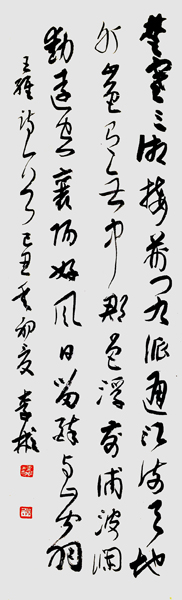 楚塞三湘接荆门九派通江流天地
外山色有无中郡邑浮前浦波澜
动远空襄阳好风日留醉与山翁
王维诗一首己丑年初夏李彬